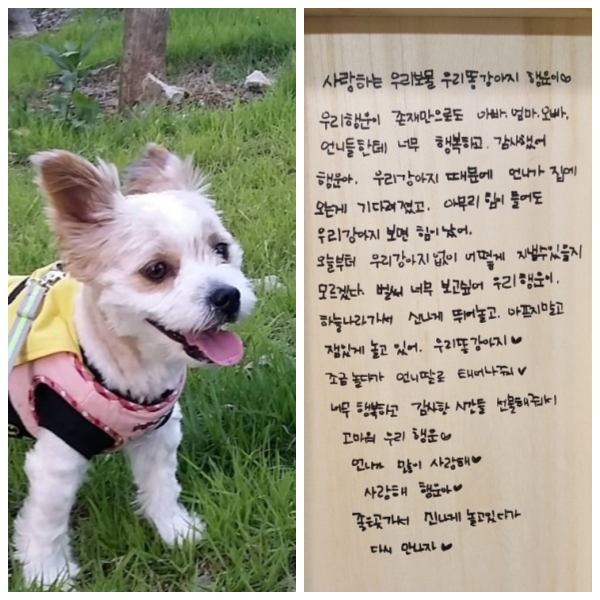 사랑하는 우리보물 우리똥강아지 행운이♡
우리행운이 존재만으로도 아빠, 엄마, 오빠,
언니들한테 너무 행복하고, 감사했어
행운아. 우리강아지 때문에 언니가 집에
오는게 기다려졌고, 아무리 힘이 들어도
우리강아지 보면 힘이났어.
오늘부터 우리강아지없이 어떻게 지낼수있을지
모르겠다. 벌써 너무 보고싶어 우리행운이.
하늘나라가서 신나게 뛰어놀고, 아프지말고
잼있게 놀고 있어. 우리똥강아지♥
조금 놀다가 언니딸로 태어나줘♥
너무 행복하고 감사한 시간들 선물해줘서
고마워 우리 행운♡
언니가 많이 사랑해♥
사랑해 행운아♥
좋은곳가서 신나게 놀고있다가
다시 만나자♥